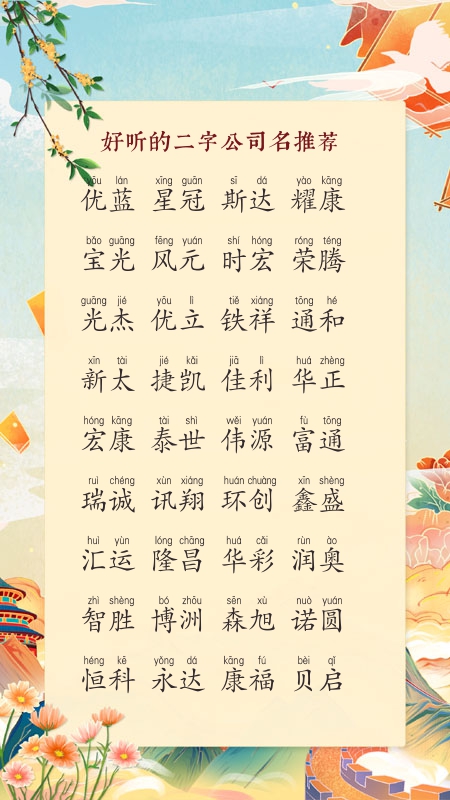 好听的二字公司名推荐
yōu lán xīng guān sī dá yào kāng
优蓝 星冠 斯达 耀康
bǎo guāng fēng yuán shí hóng róng téng
宝光 风元 时宏 荣腾
guāng jié yōu lì tiě xiáng tōng hé
光杰 优立 铁祥 通和
xīn tài jié kǎi jiā lì huá zhèng
新太 捷凯 佳利 华正
hóng kāng tài shì wěi yuán fù tōng
宏康 泰世 伟源 富通
ruì chéng xùn xiáng huán chuàng xīn shèng
瑞诚 讯翔 环创 鑫盛
huì yùn lóng chāng huá cǎi rùn ào
汇运 隆昌 华彩 润奥
zhì shèng bó zhōu sēn xù nuò yuán
智胜 博洲 森旭 诺圆
héng kē yǒng dá kāng fú bèi qǐ
恒科 永达 康福 贝启